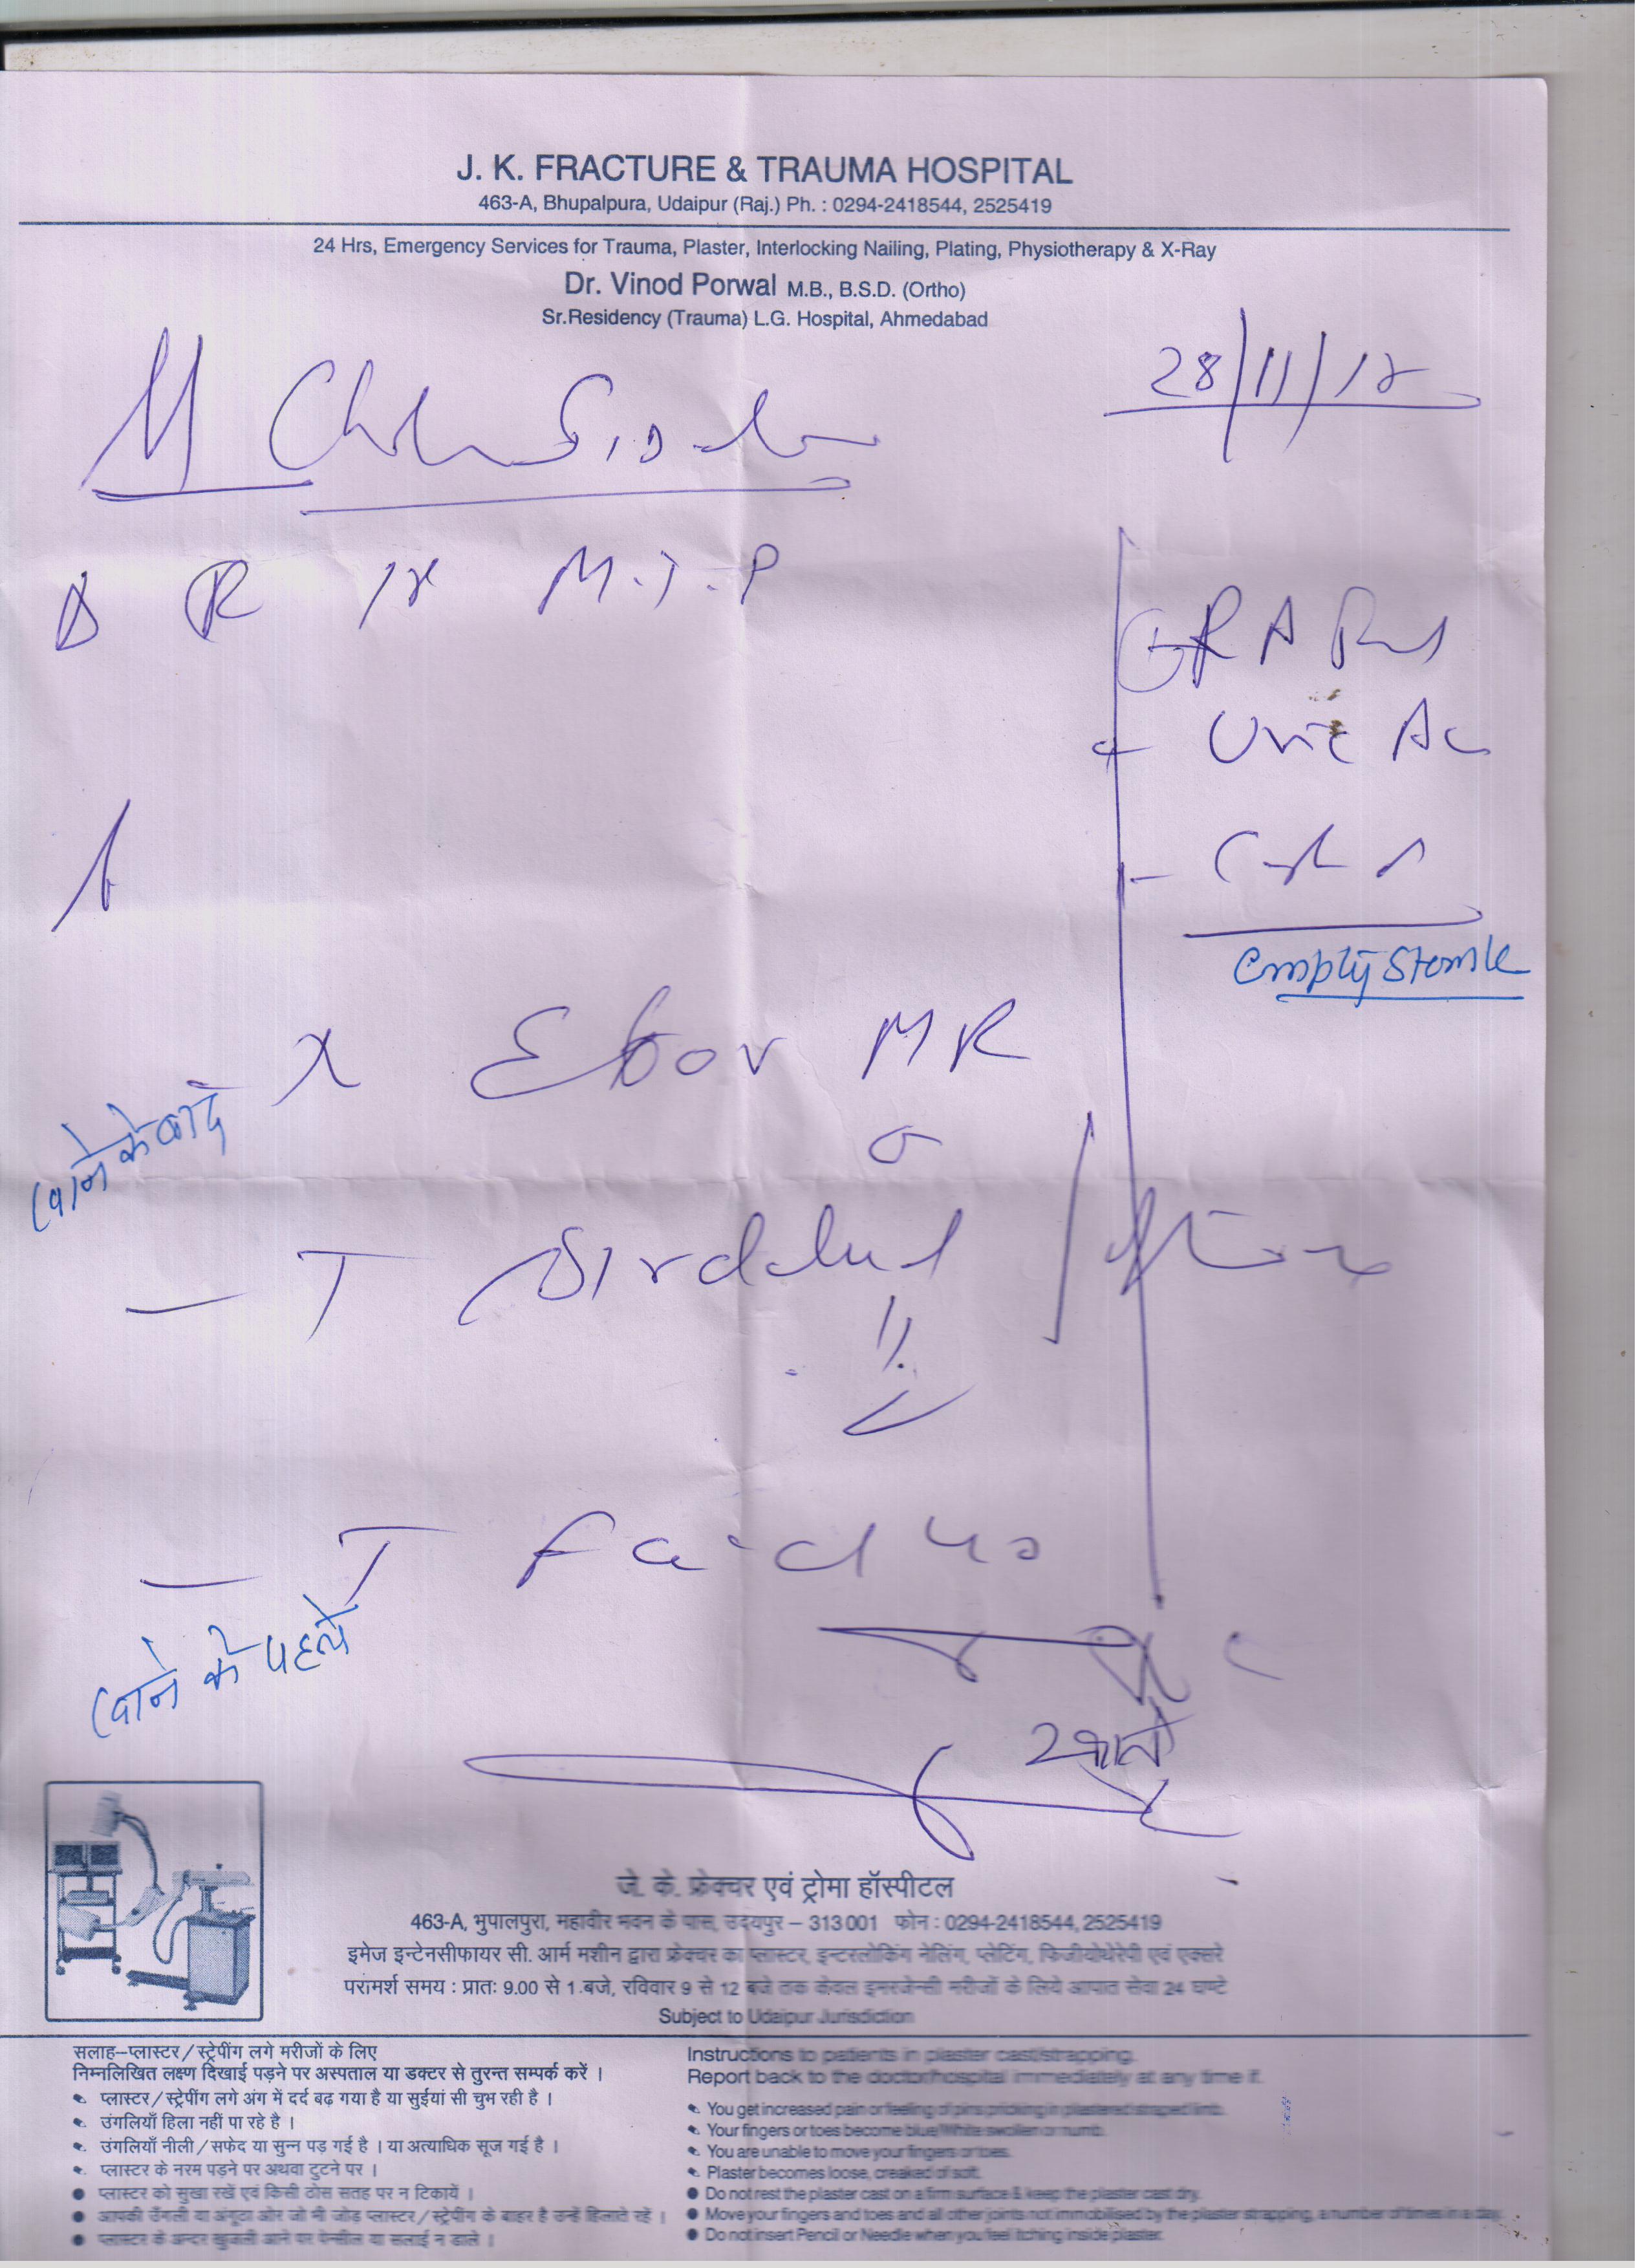 J. K. FRACTURE & TRAUMA HOSPITAL
463-A, Bhupalpura, Udaipur (Raj.) Ph. : 0294-2418544, 2525419
24 Hrs, Emergency Services for Trauma, Plaster, Interlocking Nailing, Plating, Physiotherapy & X-Ray
Dr. Vinod Porwal M.B., B.S.D. (Ortho)
Sr.Residency (Trauma) L.G. Hospital, Ahmedabad
28/11/18
R
RA
Uric Ac
Empty Stomle
MR
खाने के बाद
T
T
40
खाने के पहले
जे. के. फ्रेक्चर एवं ट्रोमा हॉस्पीटल
463-A, भुपालपुरा, महावीर भवन के पास, उदयपुर – 313001 फोन : 0294-2418544, 2525419
इमेज इन्टेनसीफायर सी. आर्म मशीन द्वारा फ्रेक्चर का प्लास्टर, इन्टरलोकिंग नेलिंग, प्लेटिंग, फिजीयोथेरेपी एवं एक्सरे
परांमर्श समय : प्रातः 9.00 से 1.बजे, रविवार 9 से 12 बजे तक केवल इमरजेन्सी मरीजों के लिये आपात सेवा 24 घण्टे
Subject to Udaipur Jurisdiction
सलाह–प्लास्टर/स्ट्रेपींग लगे मरीजों के लिए
निम्नलिखित लक्षण दिखाई पड़ने पर अस्पताल या डक्टर से तुरन्त सम्पर्क करें ।
प्लास्टर/स्ट्रेपींग लगे अंग में दर्द बढ़ गया है या सुईयां सी चुभ रही है ।
उंगलियाँ हिला नहीं पा रहे है ।
उंगलियाँ नीली/सफेद या सुन्न पड़ गई है । या अत्याधिक सूज गई है ।
प्लास्टर के नरम पड़ने पर अथवा टुटने पर ।
प्लास्टर को सुखा रखें एवं किसी ठोस सतह पर न टिकायें ।
आपकी उँगली या अंगूठा ओर जो भी जोड़ प्लास्टर/स्ट्रेपींग के बाहर है उन्हें हिलाते रहें ।
प्लास्टर के अन्दर खुजली आने पर पेन्सील या सलाई न डाले ।
Instructions to patients in plaster cast/strapping.
Report back to the doctor/hospital immediately at any time if.
You get increased pain or feeling of pins pricking in plastered straped limb.
Your fingers or toes become blue/White swollen or numb.
You are unable to move your fingers or toes.
Plaster becomes loose, creaked of soft.
Do not rest the plaster cast on a firm surface & keep the plaster cast dry.
Move your fingers and toes and all other joints not immobilised by the plaster strapping, a number of times in a day.
Do not insert Pencil or Needle when you feel itching inside plaster.